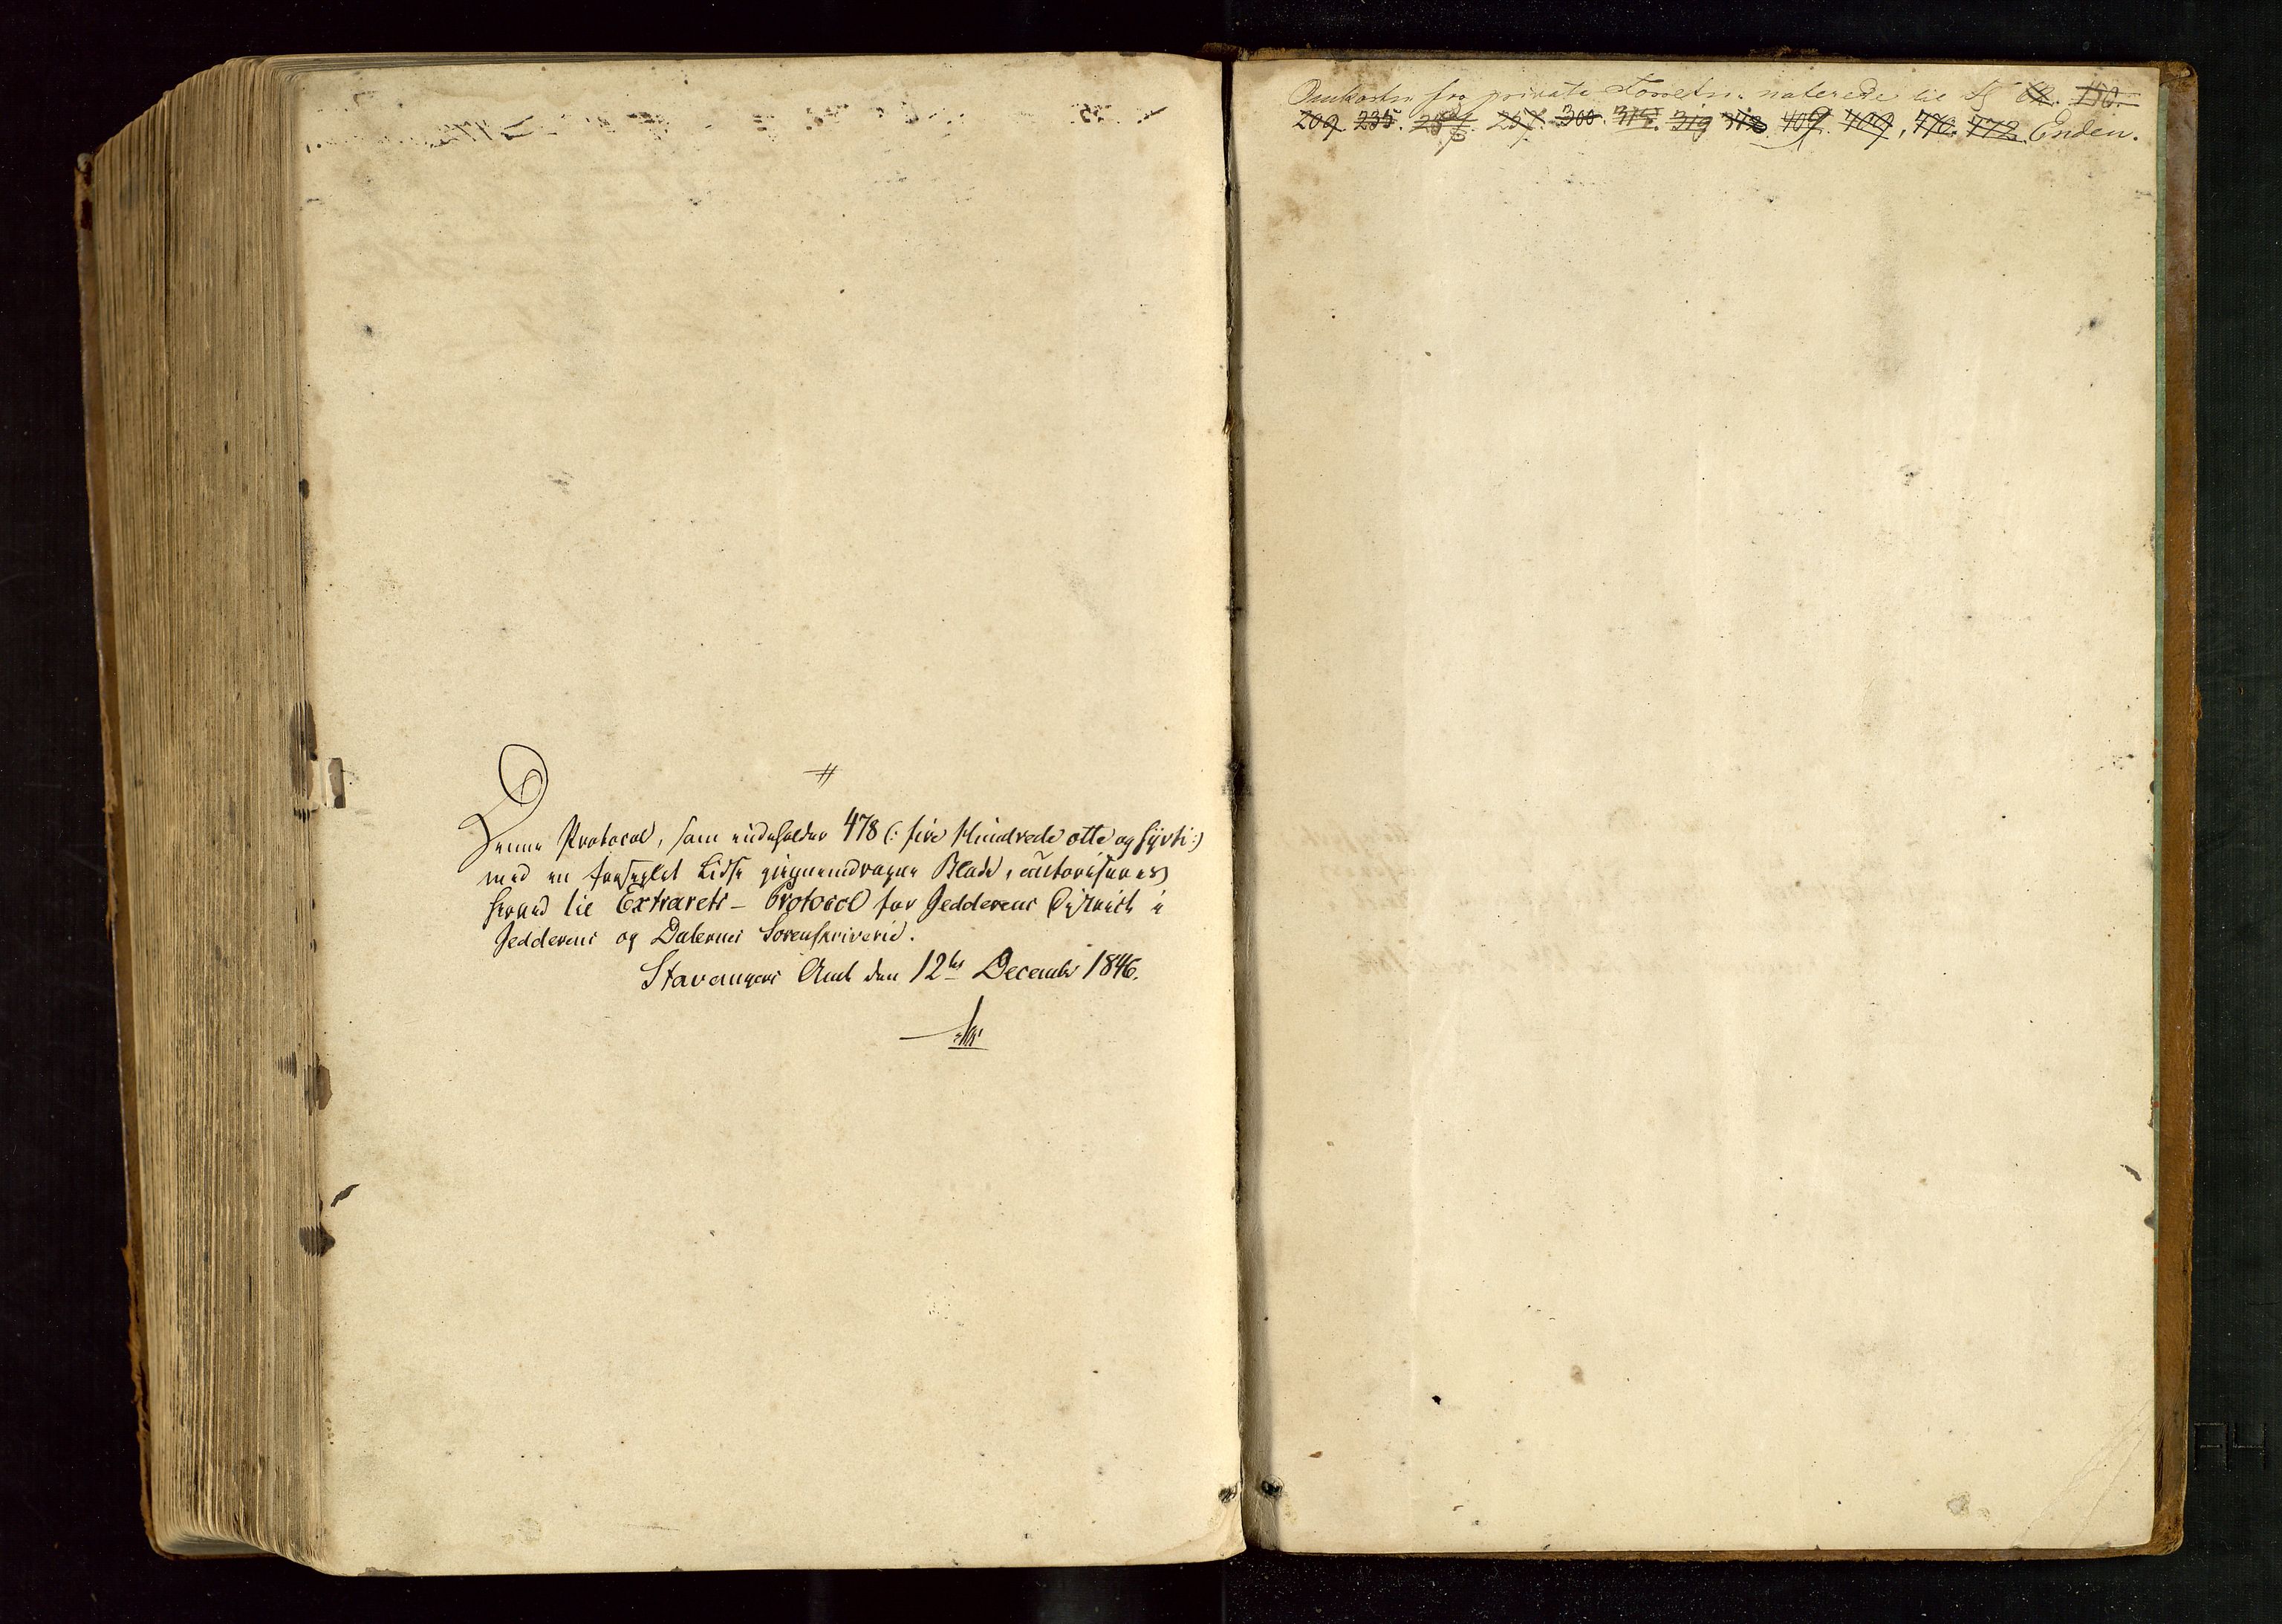 Denne Protocol, som indeholder 478 (: fire Hundrede otte og syvti :)
med en forseglet Lidse gjennemdragne Blade, autoriseres
herved til Extrarets-Protocol for Jedderens Districts i
Jedderens og Dalernes Sorenskriverie.
Stavangers Amt den 12te Decembr 1846.
Omkostn. fra private Forretn. noterede til
209 235. 300. 315. 319 409. 409, 470. 472. Enden.